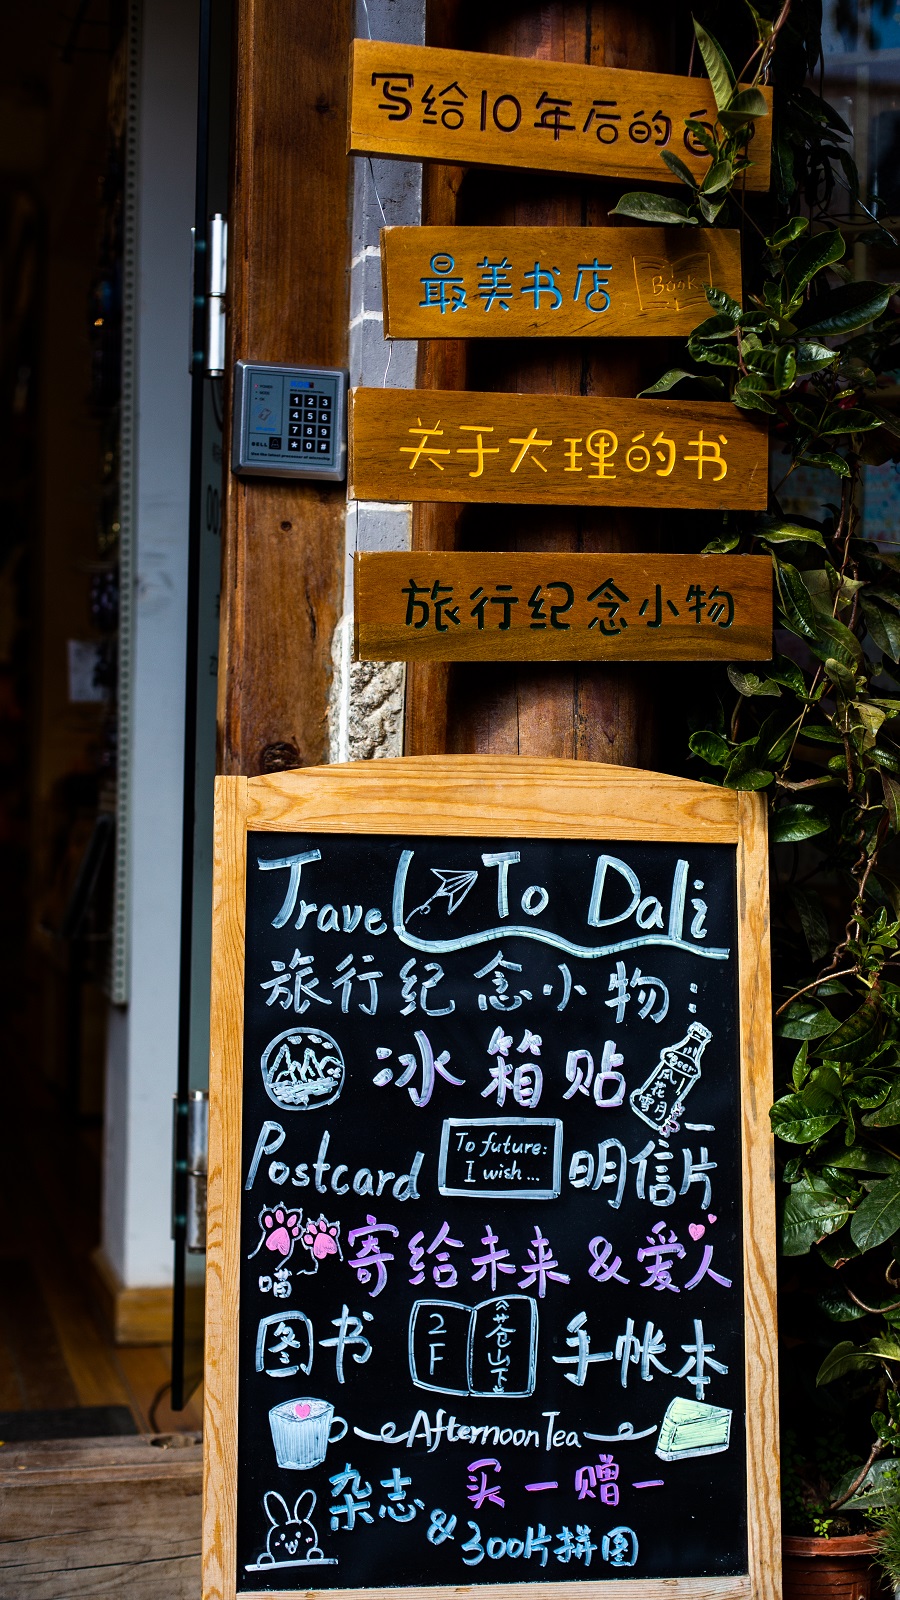 写给10年后的自
最美书店 Book
关于大理的书
旅行纪念小物
1 2 3
4 5 6
7 8 9
* 0 #
BELL
Travel To Dali
旅行纪念小物:
冰箱贴
Beer
风花雪月
Postcard
To future:
I wish...
明信片
喵
寄给未来&爱人
图书
2F
《苍山下》
手帐本
Afternoon Tea
杂志 买一赠一
&300片拼图